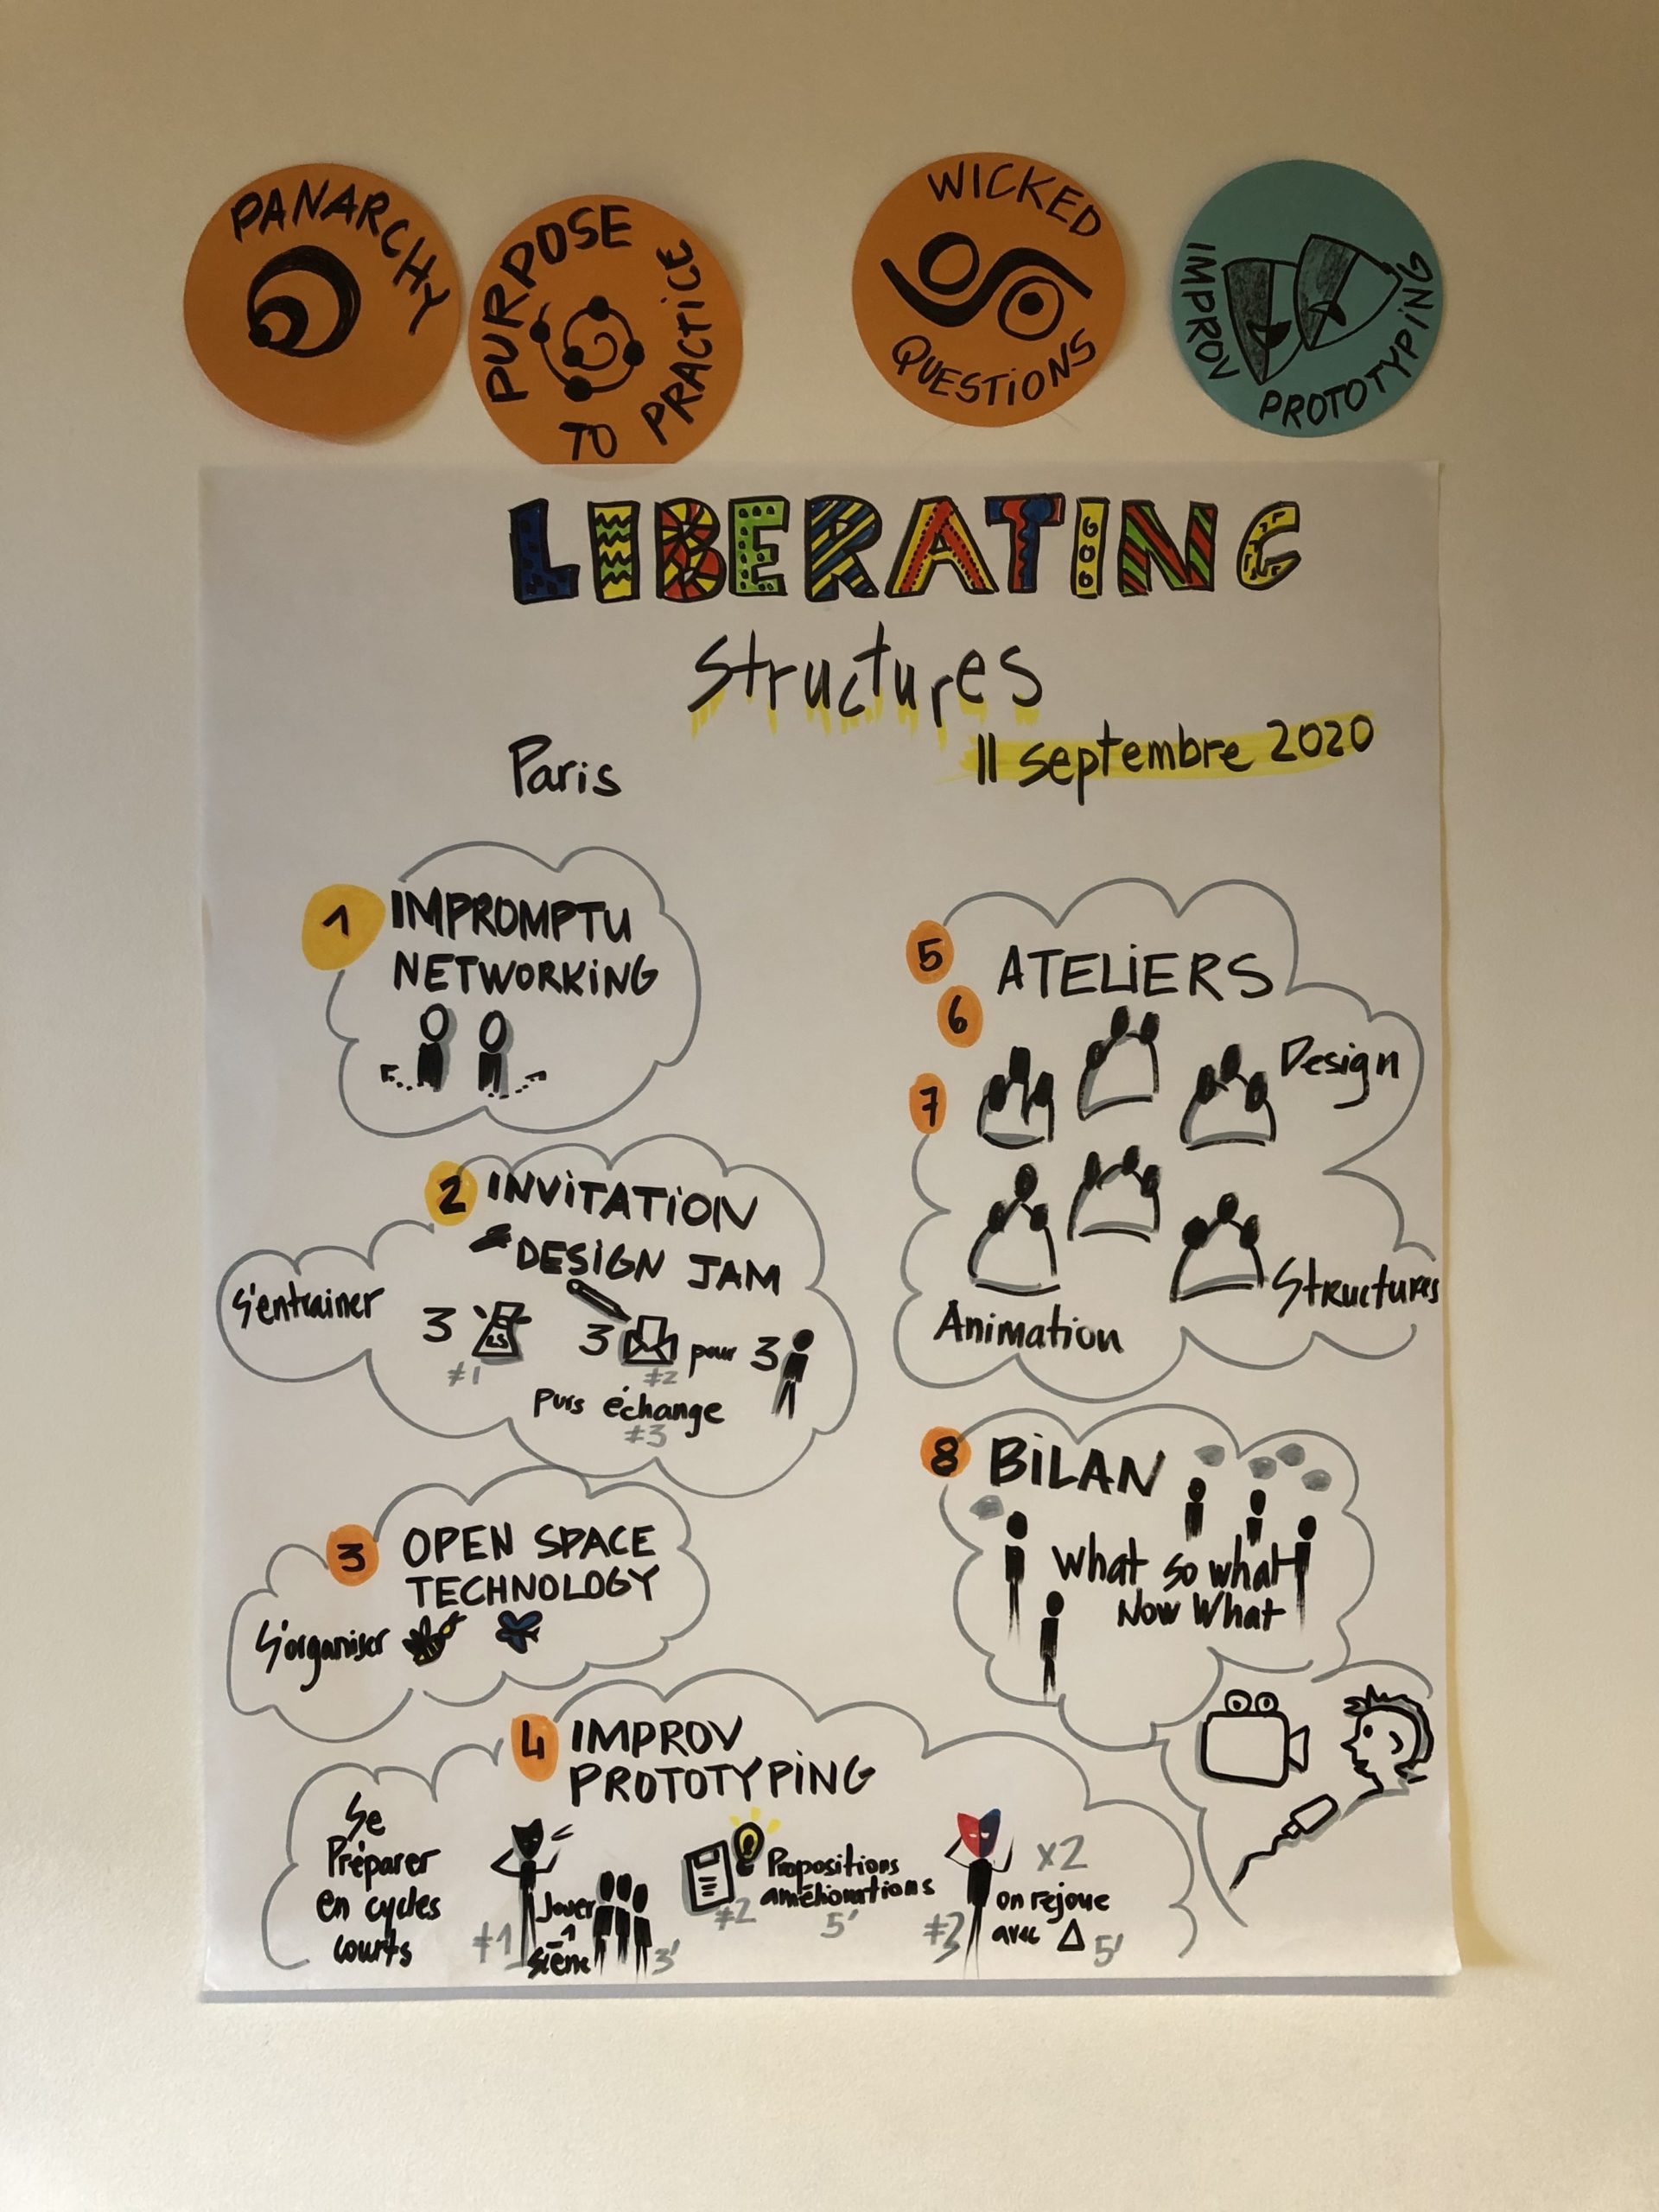 PANARCHY
PURPOSE
TO PRACTICE
WICKED
QUESTIONS
IMPROV
PROTOTYPING
LIBERATING
structures
Paris
11 septembre 2020
1 IMPROMPTU
NETWORKING
2 INVITATION
DESIGN JAM
S'entrainer
3 3 pour 3
#1 #2
Puis échange
#3
3 OPEN SPACE
TECHNOLOGY
S'organiser
4 IMPROV
PROTOTYPING
Se
Préparer
en cycles
courts
#1 Jouer
1
sième 3'
Propositions
améliorations
#2 5'
x2
on rejoue
#3 avec Δ 5'
5 ATELIERS
6
7
Design
Structures
Animation
8 BILAN
What so what
Now What